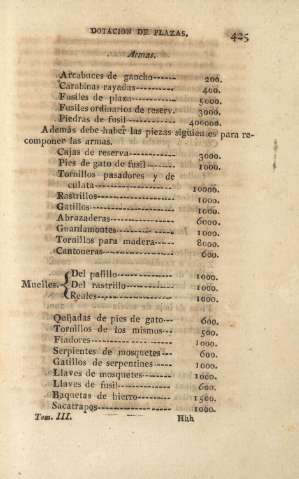 DOTACION DE PLAZAS. 425
Armas.
Arcabuces de gancho------- 200.
Carabinas rayadas--------- 400.
Fusiles de plaza---------- 5000.
Fusiles ordinarios de reserv. 3000.
Piedras de fusil---------- 400000.
Además debe haber las piezas siguientes para re-
componer las armas.
Cajas de reserva---------- 3000.
Pies de gato de fusil----- 1000.
Tornillos pasadores y de
culata---------- 10000.
Rastrillos---------- 1000.
Gatillos---------- 1000.
Abrazaderas---------- 6000.
Guardamontes---------- 1000.
Tornillos para madera---- 8000.
Cantoneras---------- 600.
Del pasillo---------- 1000.
Muelles. Del rastrillo---------- 1000.
Reales---------- 1000.
Quijadas de pies de gato--- 600.
Tornillos de los mismos--- 500.
Fiadores---------- 1000.
Serpientes de mosquetes--- 600.
Gatillos de serpentines---- 1000.
Llaves de mosquetes------ 1000.
Llaves de fusil---------- 600.
Baquetas de hierro------- 1500.
Sacatrapos---------- 1000.
Tom. III. Hhh